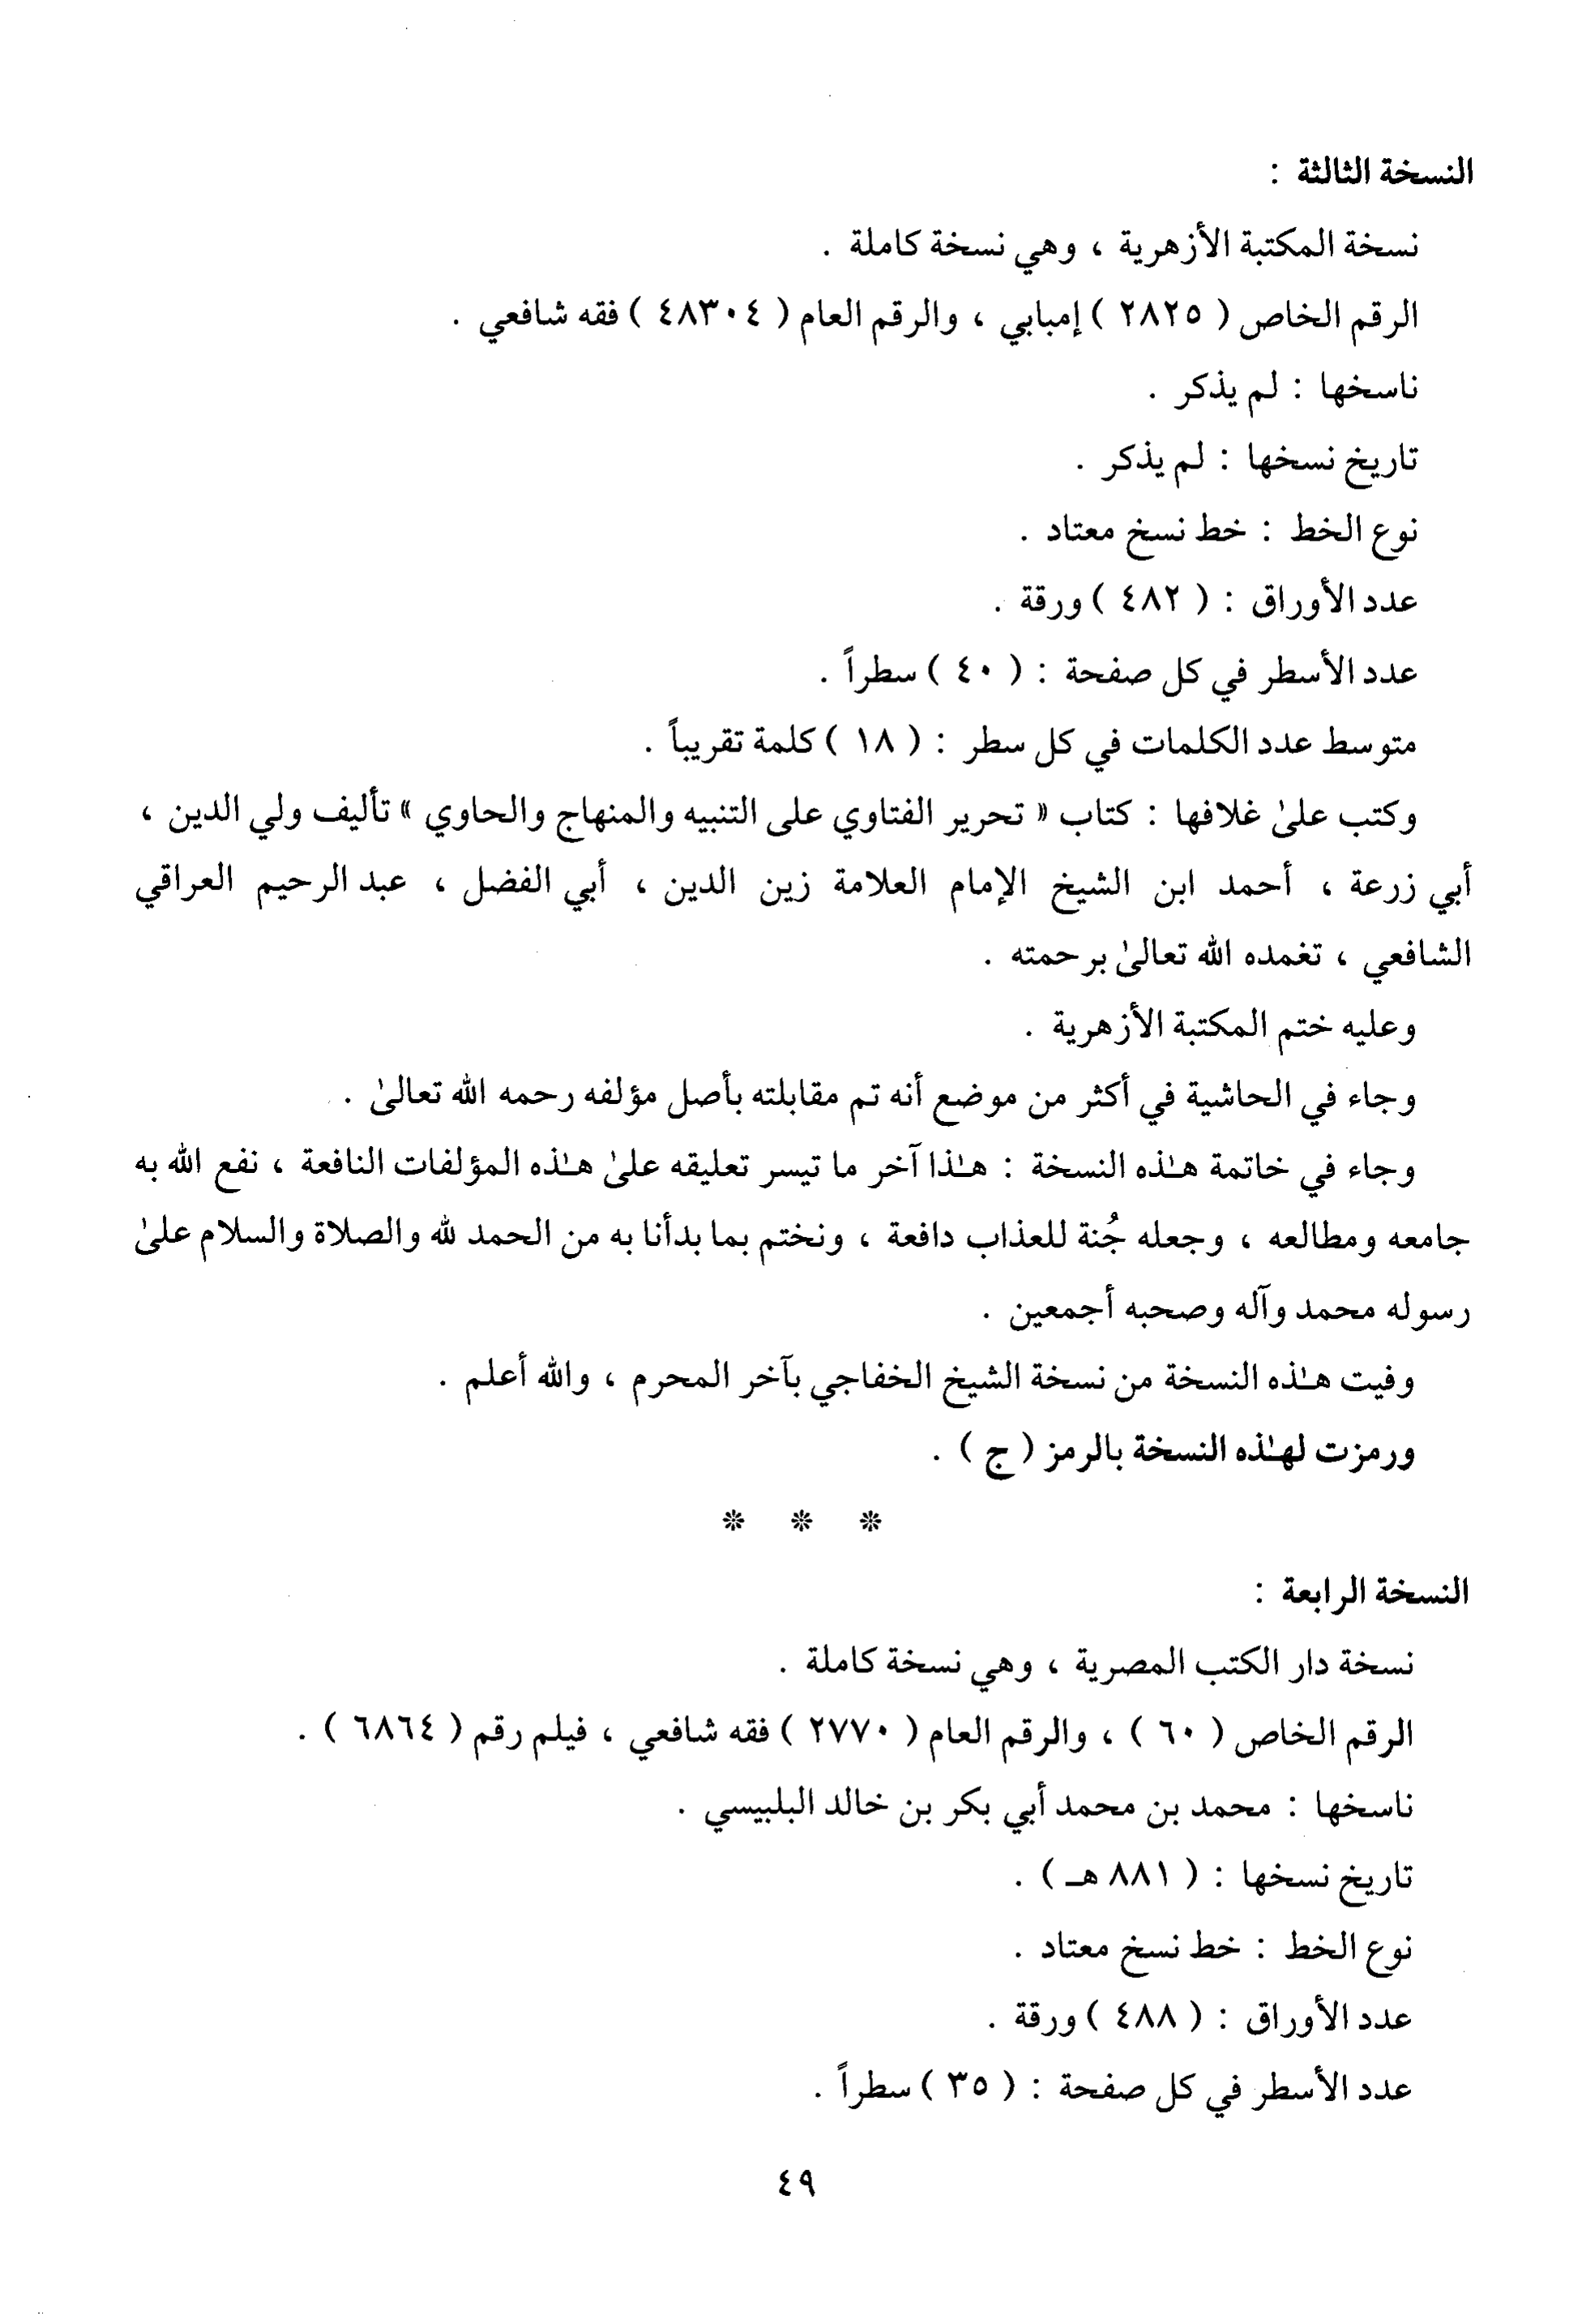 النسخة الثالثة :
نسخة المكتبة الأزهرية ، وهي نسخة كاملة .
الرقم الخاص ( ٢٨٢٥ ) إمبابي ، والرقم العام ( ٤٨٣٠٤ ) فقه شافعي .
ناسخها : لم يذكر .
تاريخ نسخها : لم يذكر .
نوع الخط : خط نسخ معتاد .
عدد الأوراق : ( ٤٨٢ ) ورقة .
عدد الأسطر في كل صفحة : ( ٤٠ ) سطراً .
متوسط عدد الكلمات في كل سطر : ( ١٨ ) كلمة تقريباً .
وكتب علىٰ غلافها : كتاب « تحرير الفتاوي على التنبيه والمنهاج والحاوي » تأليف ولي الدين ،
أبي زرعة ، أحمد ابن الشيخ الإمام العلامة زين الدين ، أبي الفضل ، عبد الرحيم العراقي
الشافعي ، تغمده الله تعالىٰ برحمته .
وعليه ختم المكتبة الأزهرية .
وجاء في الحاشية في أكثر من موضع أنه تم مقابلته بأصل مؤلفه رحمه الله تعالىٰ .
وجاء في خاتمة هـٰذه النسخة : هـٰذا آخر ما تيسر تعليقه علىٰ هـٰذه المؤلفات النافعة ، نفع الله به
جامعه ومطالعه ، وجعله جُنة للعذاب دافعة ، ونختم بما بدأنا به من الحمد لله والصلاة والسلام علىٰ
رسوله محمد وآله وصحبه أجمعين .
وفيت هـٰذه النسخة من نسخة الشيخ الخفاجي بآخر المحرم ، والله أعلم .
ورمزت لهـٰذه النسخة بالرمز ( ج ) .
* * *
النسخة الرابعة :
نسخة دار الكتب المصرية ، وهي نسخة كاملة .
الرقم الخاص ( ٦٠ ) ، والرقم العام ( ٢٧٧٠ ) فقه شافعي ، فيلم رقم ( ٦٨٦٤ ) .
ناسخها : محمد بن محمد أبي بكر بن خالد البلبيسي .
تاريخ نسخها : ( ٨٨١ هـ ) .
نوع الخط : خط نسخ معتاد .
عدد الأوراق : ( ٤٨٨ ) ورقة .
عدد الأسطر في كل صفحة : ( ٣٥ ) سطراً .
٤٩